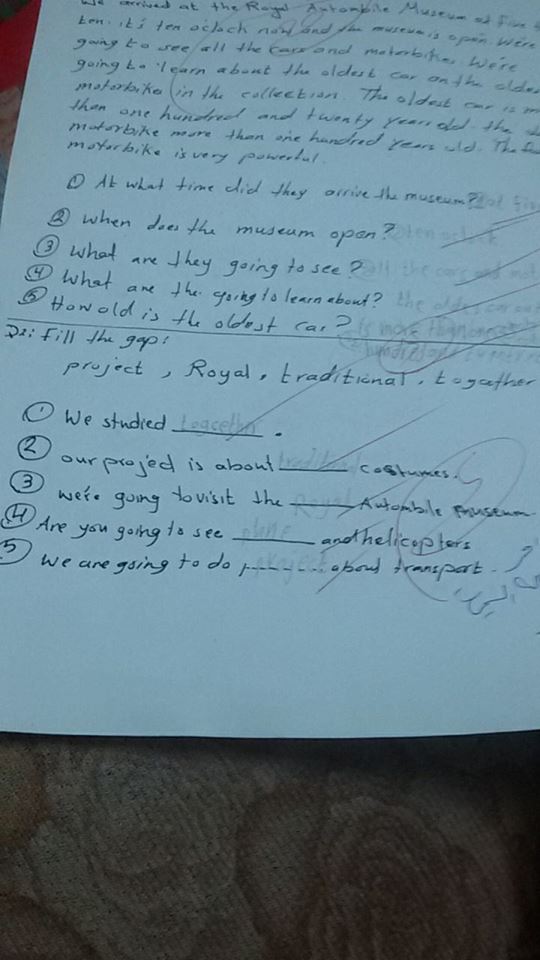 We arrived at the Royal Autombile Museum at five t
ten. it's ten oclock now and the museum is open. We're
going to see all the cars and moterbikes. We're
going to learn about the oldest car on the oldes
motorbikes in the collection. The oldest car is m
than one hundred and twenty years old. the
motorbike more than one hundred years old. The
motorbike is very powerful.
① At what time did they arrive the museum? at five
② When does the museum open? ten oclock
③ What are they going to see? all the cars and mot
④ What are the going to learn about? the oldes car
⑤ How old is the oldest car? is more than one
hundred and twenty
D2: fill the gap:
project , Royal , traditional , togather
① We studied Togcethr .
② our projed is about traditional costumes.
③ We're going to visit the Royal Autombile museum
④ Are you going to see plane and helicopters
⑤ We are going to do project about transport.